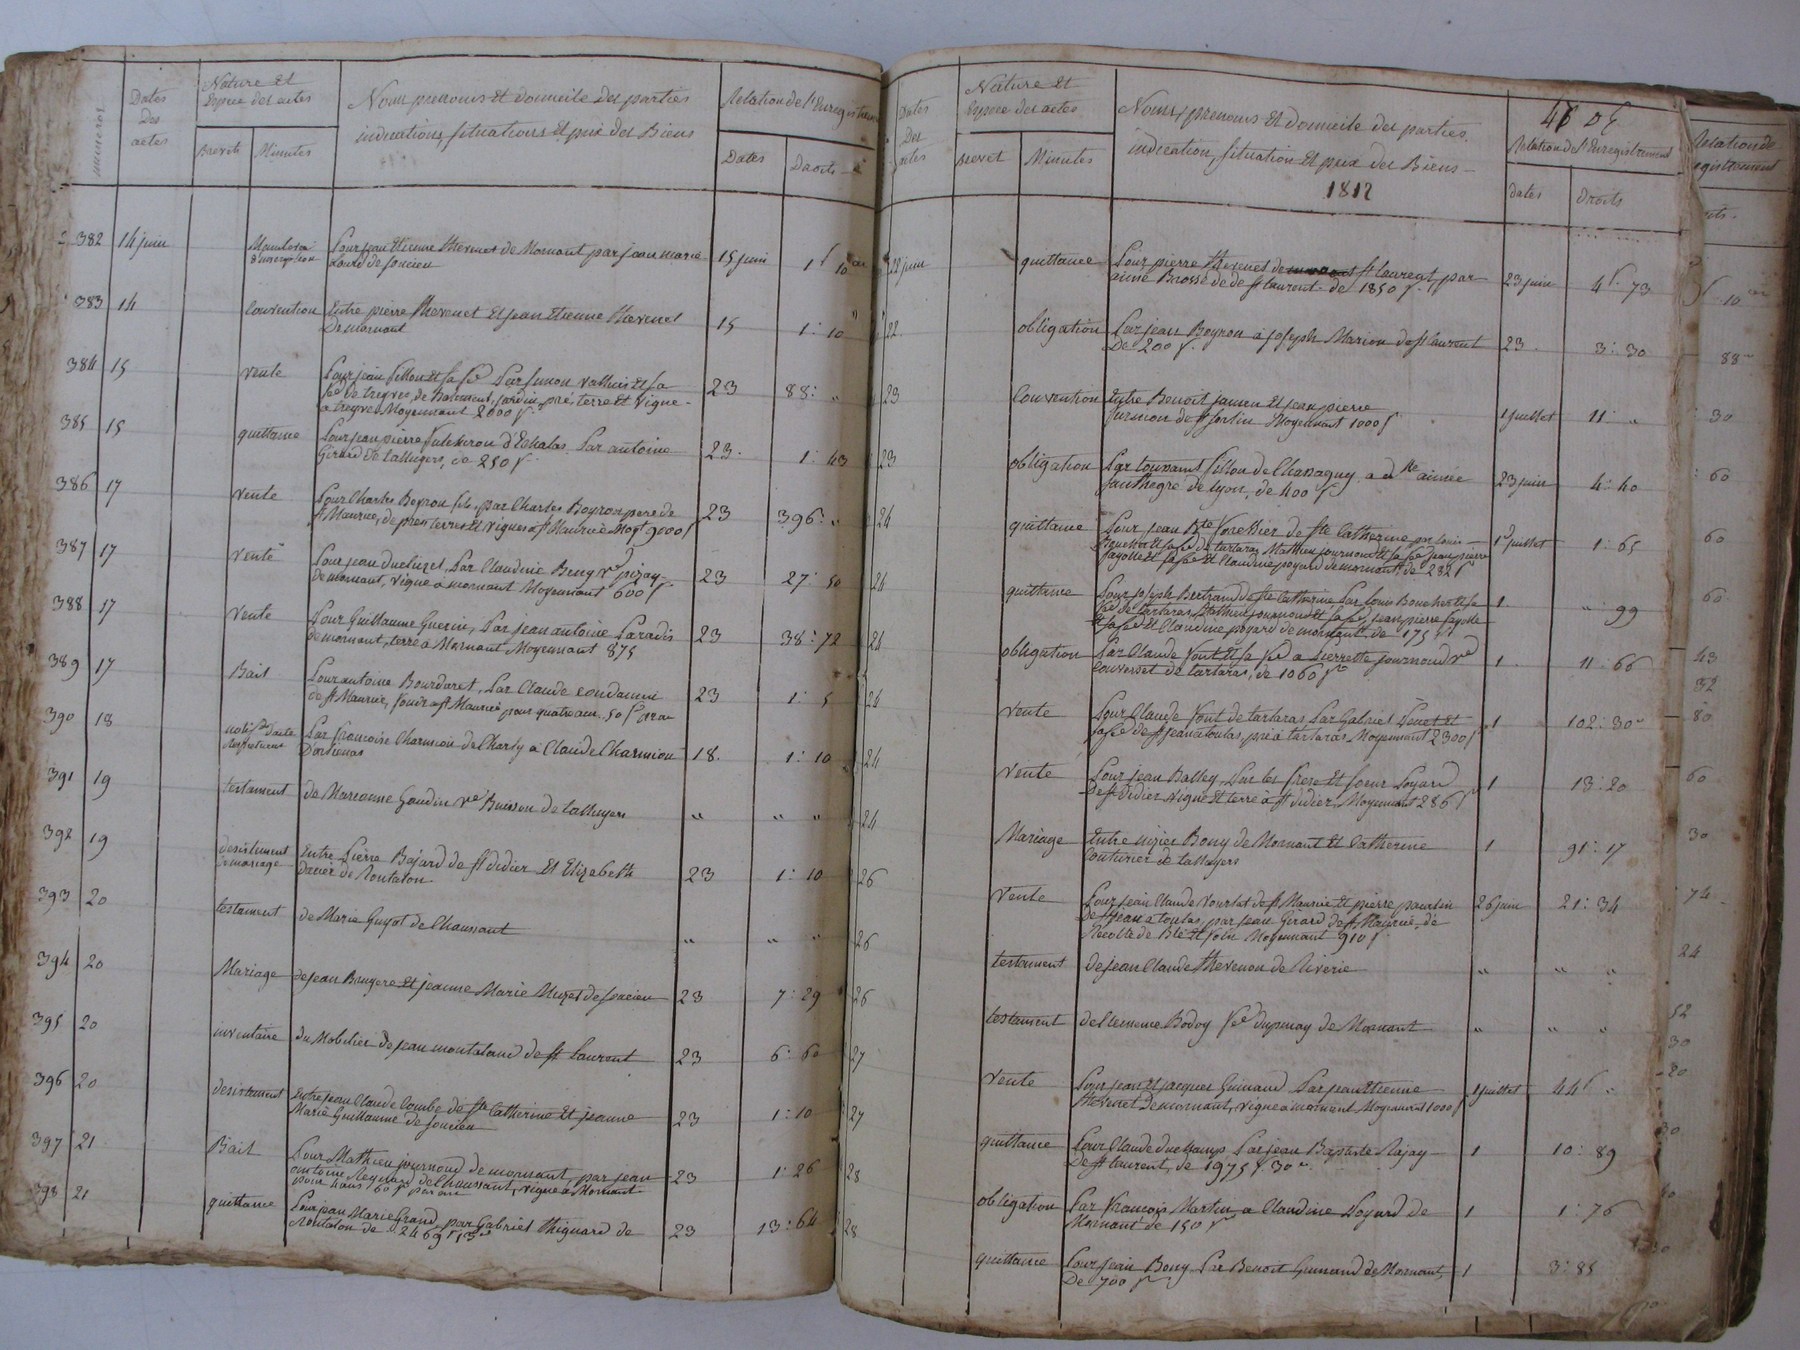 numeros
Dates
Des
actes
Nature et
Espece des actes
Brevets Minutes
Noms prenoms et domicile des parties
indications, situations et prix des Biens
Relation de l'Enregistrem
Dates Droits
382 14 juin Pour jean Etienne thevenet de Mornant par jean marie 15 juin 1f 10
de soucieu
383 14 Convention Entre pierre thevenet et jean Etienne thevenet 15 1: 10
De mornant
384 15 vente Pour jean fillon et sa fe Par simon vathier et sa 23 88: "
fe de treyves, de Batiment, jardin, pré, terre et vigne
a treyves Moyennant 2000 f
385 15 quittance Pour jean pierre d'Echalas Par antoine 23 1: 43
Girard de talluyers, de 250 f
386 17 vente Pour Charles Boyron fils, par Charles Boyron pere de 23 396: "
st Maurice, de pres terres et vignes a st Maurice Moyt 9000 f
387 17 vente Pour jean ducluzel, Par Claudine Beny ve pizay 23 27: 50
de mornant, vigne a mornant Moyennant 600 f
388 17 vente Pour Guillaume Guerin, Par jean antoine Paradis 23 38: 72
de mornant, terre à Mornant Moyennant 875
389 17 Bail Pour antoine Bourdaret, Par Claude condamin 23 1: 5
de st Maurice, fonds a st Maurice pour quatre ans 50 f par an
390 18 Par francoise Charmion de Charly a Claude Charmion 18. 1: 10
D'orlienas
391 19 testament de Marianne Goudin ve Buisson de talluyers " " "
392 19 desistement Entre Pierre Bajard de st didier et Elizabeth 23 1: 10
de mariage de Rontalon
393 20 testament de Marie Guyot de Chaussant " " "
394 20 Mariage de jean Bruyere et jeanne Marie Muzet de soucieu 23 7: 29
395 20 inventaire du Mobilier de jean montaland de st Laurent 23 6: 60
396 20 desistement Entre jean Claude Combe de ste Catherine et jeanne 23 1: 10
Marie Guillaume de soucieu
397 21 Bail Pour Mathieu journoud de mornant, par jean 23 1: 26
antoine Reynard de Chaussant, vigne a Mornant
pour 4 ans 60 f par an
398 21 quittance Pour jean Marie Grand, par Gabriel thiguard de 23 13: 64
Rontalon de 2469 f 13 c
Dates
Des
actes
Nature et
Espece des actes
brevet Minutes
Noms, prenoms et domicile des parties
indication, situation et prix des Biens
1812
Relation de l'Enregistrement
dates Droits
22 juin quittance Pour pierre thevenet de st Laurent, par 23 juin 4f 73
aimé Brossede de st Laurent de 1850 f
22 obligation Par jean Boyron a joseph Marion de st Laurent 23 3: 30
De 200 f
23 Convention Entre Benoit jamen et jean pierre 1 juillet 11 "
furmion de st sorlin Moyennant 1000 f
23 obligation Par toussaint fillon de Chassagny a dlle aimée 23 juin 4: 40
de Lyon, de 400 f
24 quittance Pour jean Bte Forestier de ste Catherine par louis 1r juillet 1: 65
Bouchet et sa fe de tartaras Mathieu journoud et sa fe jean pierre
fayolle et sa fe et Claudine poyard de mornant de 292 f
24 quittance Pour joseph Bertrand de ste Catherine Par louis Bouchet et sa 1 " 99
fe de tartaras, Mathieu journoud et sa fe, jean pierre fayolle
et sa fe et Claudine poyard de mornant de 175 f
24 obligation Par Claude Font et sa fe a Pierrette journoud ve 1 11: 66
de tartaras, de 1060 f
24 vente Pour Claude Font de tartaras Par Gabriel et 1 102: 30
sa fe de st jean a toulas, pré à tartaras Moyennant 2300 f
24 vente Pour jean Balley, Par les frere et soeur Poyard 1 13: 20
De st didier vigne et terre à st didier, Moyennant 286 f
24 Mariage Entre Bony de Mornant et Catherine 1 91: 17
Couturier de talluyers
26 vente Pour jean Claude Vourlat de st Maurice et pierre 26 juin 21: 34
de st jean a toulas, par jean Girard de st Maurice, de
Recolte de Blé et foin Moyennant 910 f
26 testament de jean Claude thevenon de Riverie " " "
26 testament de Clemence Bodoy fe dupinay de Mornant " " "
27 vente Pour jean et jacques Guinand Par jean Etienne 1 juillet 44f "
thevenet de mornant, vigne a mornant Moyennant 1000 f
27 quittance Pour Claude duchamp Par jean Baptiste Pajay 1 10: 89
De st Laurent, de 1975 f 30 c
28 obligation Par Francois Martin a Claudine Poyard de 1 1: 76
Mornant de 150 f
28 quittance Pour jean Bony Par Benoit Guinand de Mornant, 1 3: 85
De 700 f
Relation de
egistrement
10
88
30
60
60
60
43
32
80
60
30
74
24
52
30
20
30